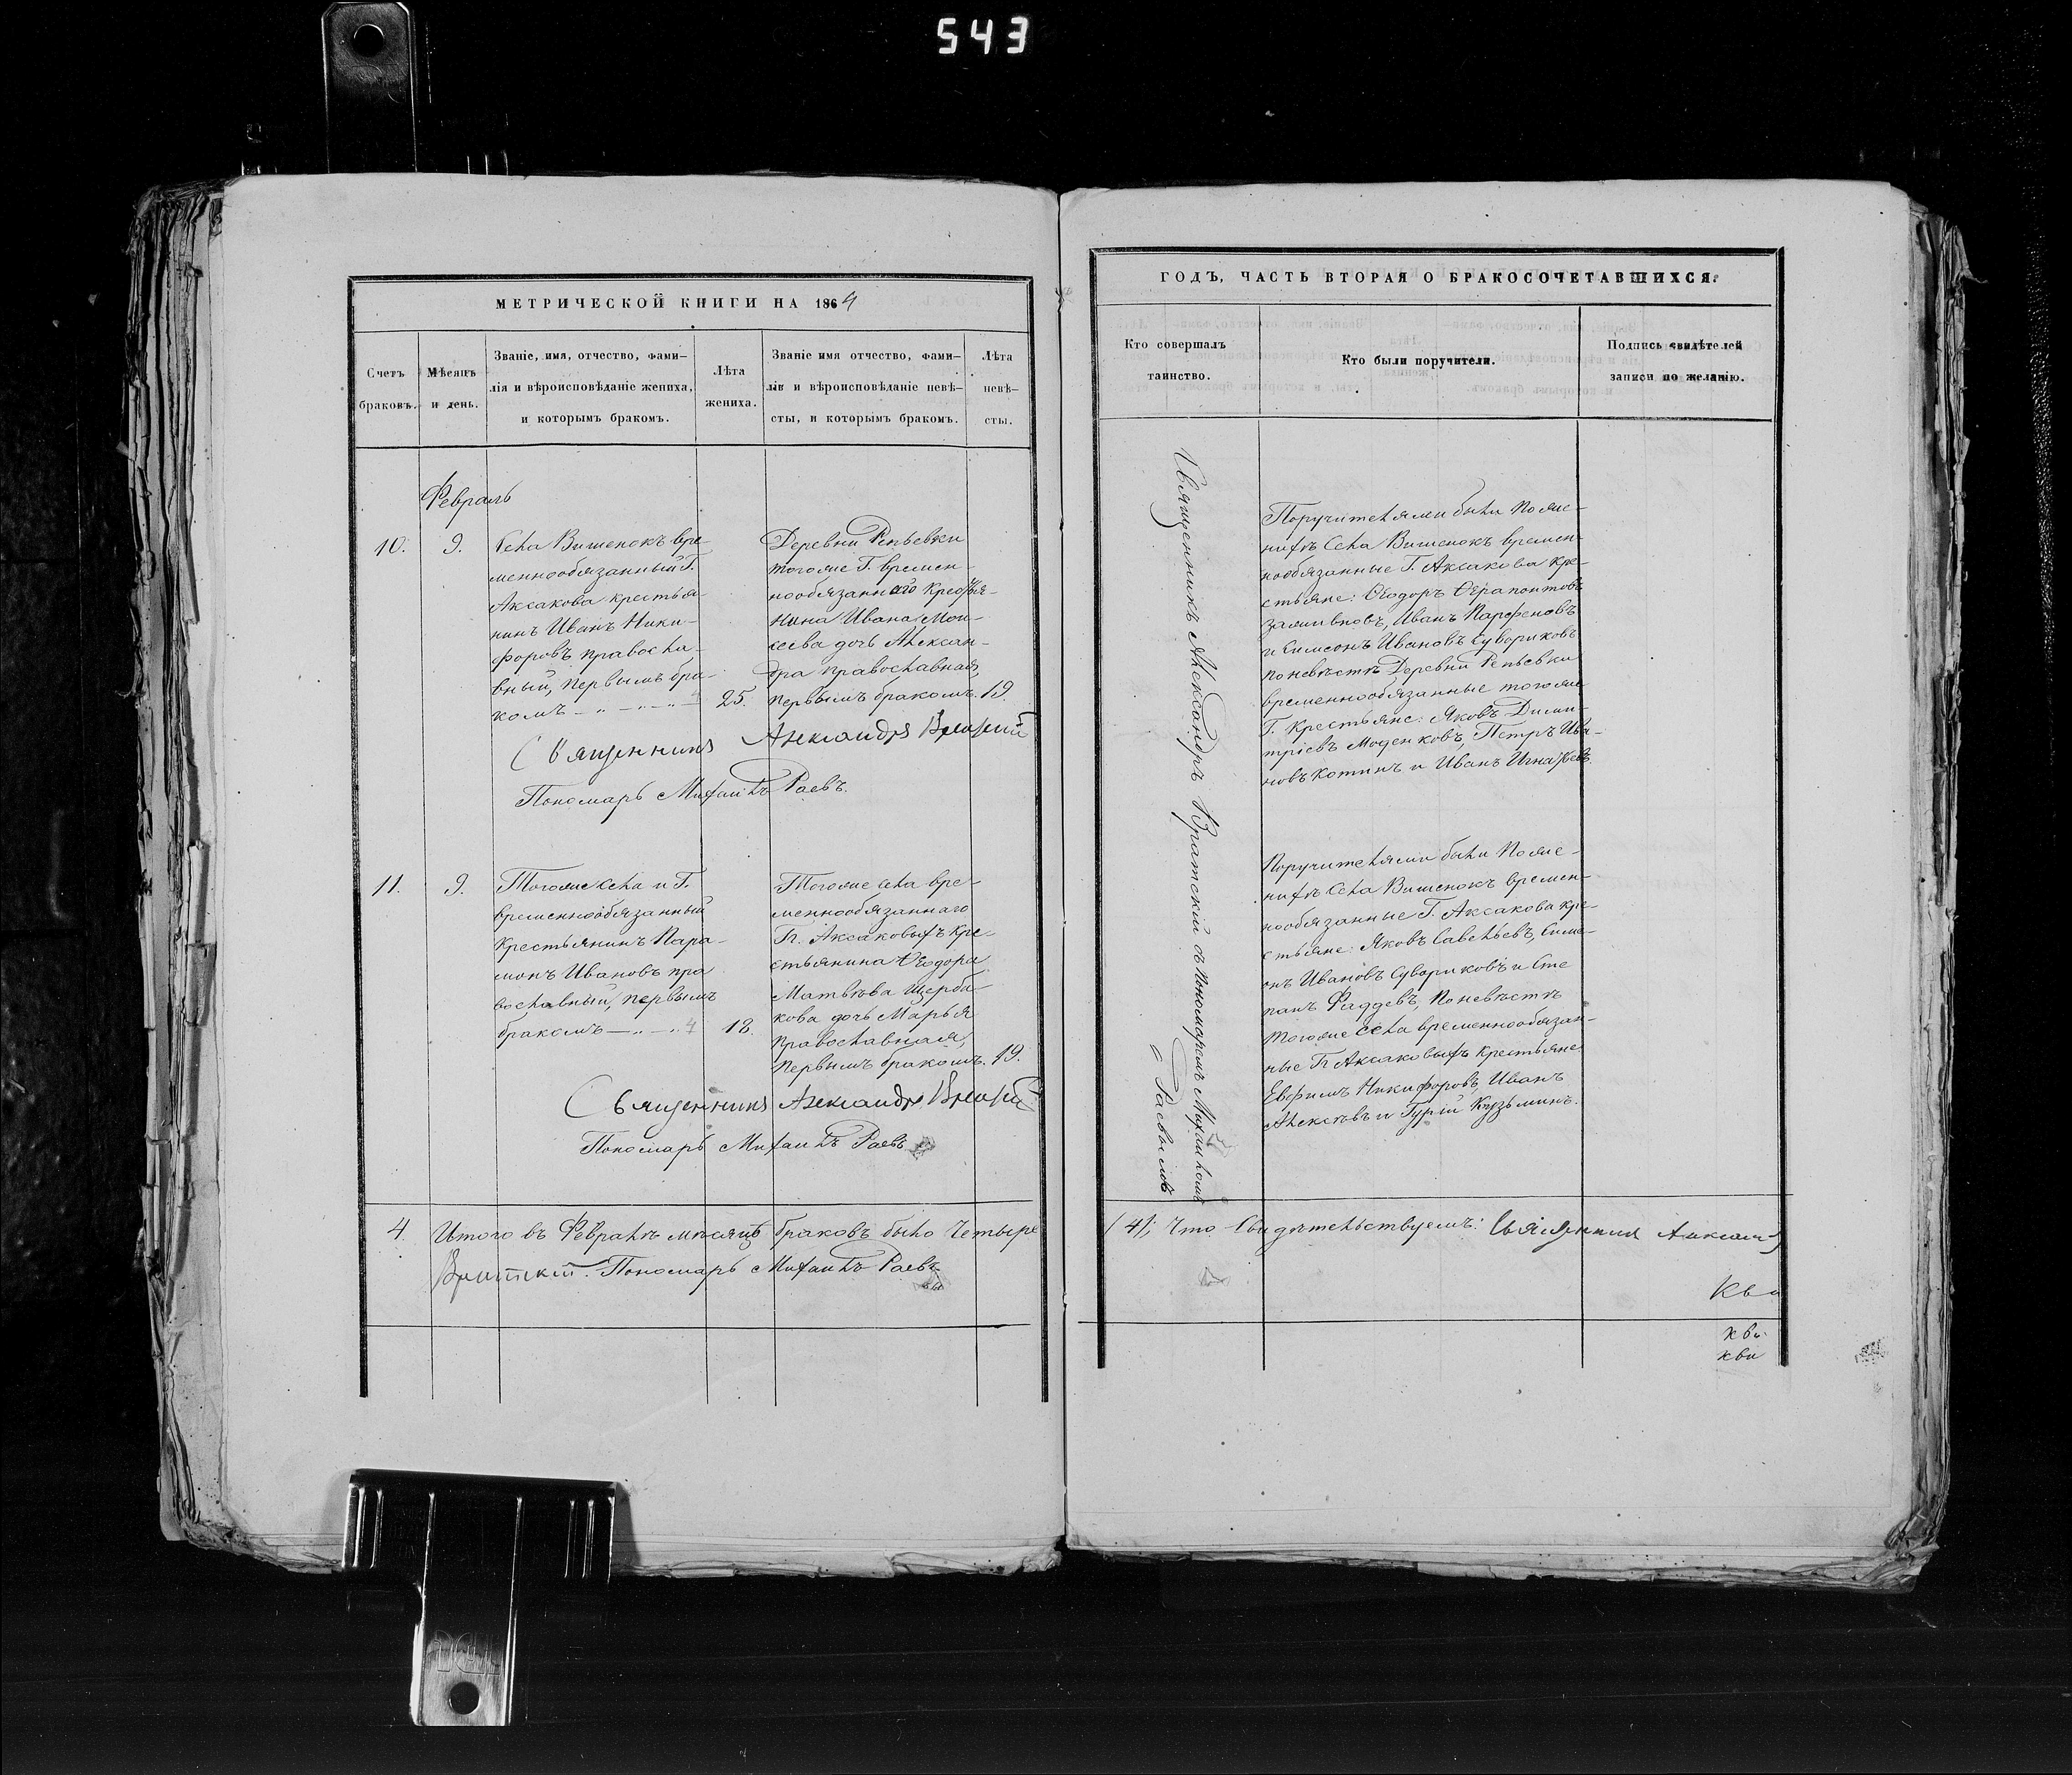 543
МЕТРИЧЕСКОЙ КНИГИ НА 1864
Счетъ браковъ.
Мѣсяцъ и день.
Званіе, имя, отчество, фами-
лія и вѣроисповѣданіе жениха,
и которымъ бракомъ.
Лѣта жениха.
Званіе имя отчество, фами-
лія и вѣроисповѣданіе невѣ-
сты, и которымъ бракомъ.
Лѣта невѣ-
сты.
Февраль
10. 9.
Села Вишенокъ вре-
меннообязанный Г.
Аксакова крестья-
нинъ Иванъ Ники-
форовъ правосла-
вный, первымъ бра-
комъ 25.
Деревни Репьевки
тогоже Г. времен-
нообязаннаго крестья-
нина Ивана Мои-
сеева дочь Алексан-
дра православная,
первымъ бракомъ. 19.
Священникъ Александръ Вратскій
Пономарь Михаилъ Раевъ.
11. 9.
Тогоже села и Г.
временнообязанный
крестьянинъ Пара-
монъ Ивановъ пра
вославный, первымъ
бракомъ 18.
Тогоже села вре-
меннообязаннаго
Гг. Аксаковыхъ кре-
стьянина Ѳеодора
Матвѣева Щерба-
кова дочь Марья
православная,
первымъ бракомъ. 19.
Священникъ Александръ Вратскій
Пономарь Михаилъ Раевъ
4. Итого въ Февралѣ мѣсяцѣ браковъ было четыре
Вратскій. Пономарь Михаилъ Раевъ
ГОДЪ, ЧАСТЬ ВТОРАЯ О БРАКОСОЧЕТАВШИХСЯ.
Кто совершалъ
таинство.
Кто были поручители.
Подпись свидѣтелей
записи по желанію.
Священникъ Александръ Вратскій съ Пономаремъ Михаиломъ
Раевымъ
Поручителями были по же-
нихѣ Села Вишенокъ времен-
нообязанные Г. Аксакова кре-
стьяне: Ѳеодоръ Ѳерапонтовъ
Иванъ Парфеновъ
и Симеонъ Ивановъ Сувориковъ
по невѣстѣ Деревни Репьевки
временнообязанные тогоже
Г. Крестьяне: Яковъ Дими-
тріевъ Моденковъ, Петръ Ива-
новъ Котинъ и Иванъ Игнатьевъ.
Поручителями были по же-
нихѣ Села Вишенокъ времен-
нообязанные Г. Аксакова кре-
стьяне: Яковъ Савельевъ, Симе-
онъ Ивановъ Сувориковъ и Сте
панъ Фаддевъ, по невѣстѣ
тогоже села временнообязан-
ные Гг Аксаковыхъ крестьяне
Евфимъ Никифоровъ, Иванъ
Алексѣевъ и Гурій Кузьминъ.
(4); Что свидѣтельствуемъ: Священникъ Александръ